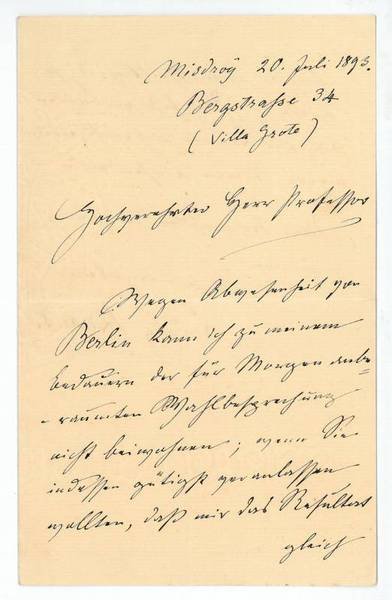 Misdroy 20. Juli 1893.
Bergstrasse 34
(Villa Grote)
Hochverehrter Herr Professor
Wegen Abwesenheit von
Berlin kann ich zu meinem
Bedauern der für Morgen anbe=
=raumten Wahlbesprechung
nicht beiwohnen; wenn Sie
indessen gütigst veranlassen
wollten, daß mir das Resultat
gleich